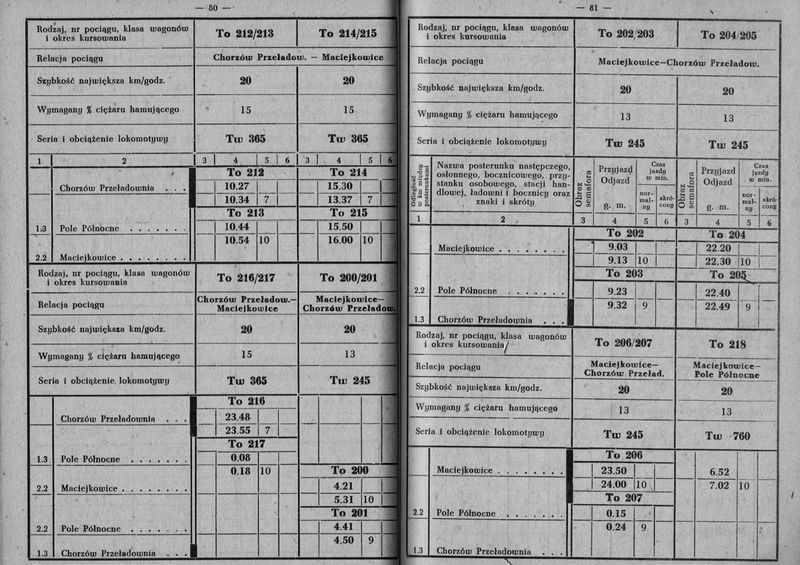 — 80 —
Rodzaj, nr pociągu, klasa wagonów i okres kursowania To 212/213 To 214/215
Relacja pociągu Chorzów Przeładow. — Maciejkowice
Szybkość największa km/godz. 20 20
Wymagany % ciężaru hamującego 15 15
Seria i obciążenie lokomotywy Tw 365 Tw 365
1 2 3 4 5 6 3 4 5 6
To 212 To 214
Chorzów Przeładownia . . . 10.27 15.30
10.34 7 13.37 7
To 213 To 215
1.3 Pole Północne . . . . . . . 10.44 15.50
10.54 10 16.00 10
2.2 Maciejkowice . . . . . . . .
Rodzaj, nr pociągu, klasa wagonów i okres kursowania To 216/217 To 200/201
Relacja pociągu Chorzów Przeładow.— Maciejkowice Maciejkowice— Chorzów Przeładow.
Szybkość największa km/godz. 20 20
Wymagany % ciężaru hamującego 15 13
Seria i obciążenie lokomotywy Tw 365 Tw 245
To 216
Chorzów Przeładownia . . . 23.48
23.55 7
To 217
1.3 Pole Północne . . . . . . . 0.08
0.18 10 To 200
2.2 Maciejkowice . . . . . . . . 4.21
5.31 10
To 201
2.2 Pole Północne . . . . . . . 4.41
4.50 9
1.3 Chorzów Przeładownia . . .
— 81 —
Rodzaj, nr pociągu, klasa wagonów i okres kursowania To 202/203 To 204/205
Relacja pociągu Maciejkowice—Chorzów Przeładow.
Szybkość największa km/godz. 20 20
Wymagany % ciężaru hamującego 13 13
Seria i obciążenie lokomotywy Tw 245 Tw 245
Odległość w km między posterunkami
Nazwa posterunku następczego,
osłonnego, bocznicowego, przy-
stanku osobowego, stacji han-
dlowej, ładowni i bocznicy oraz
znaki i skróty
Obraz semafora
Przyjazd
Odjazd
g. m.
Czas jazdy w min.
nor-
mal-
ny
skró-
cony
Obraz semafora
Przyjazd
Odjazd
g. m.
Czas jazdy w min.
nor-
mal-
ny
skró-
cony
1 2 3 4 5 6 3 4 5 6
To 202 To 204
Maciejkowice . . . . . . . . 9.03 22.20
9.13 10 22.30 10
To 203 To 205
2.2 Pole Północne . . . . . . . 9.23 22.40
9.32 9 22.49 9
1.3 Chorzów Przeładownia . . .
Rodzaj, nr pociągu, klasa wagonów i okres kursowania To 206/207 To 218
Relacja pociągu Maciejkowice— Chorzów Przeład. Maciejkowice— Pole Północne
Szybkość największa km/godz. 20 20
Wymagany % ciężaru hamującego 13 13
Seria i obciążenie lokomotywy Tw 245 Tw 760
To 206
Maciejkowice . . . . . . . . 23.50 6.52
24.00 10 7.02 10
To 207
2.2 Pole Północne . . . . . . . 0.15
0.24 9
1.3 Chorzów Przeładownia . . .